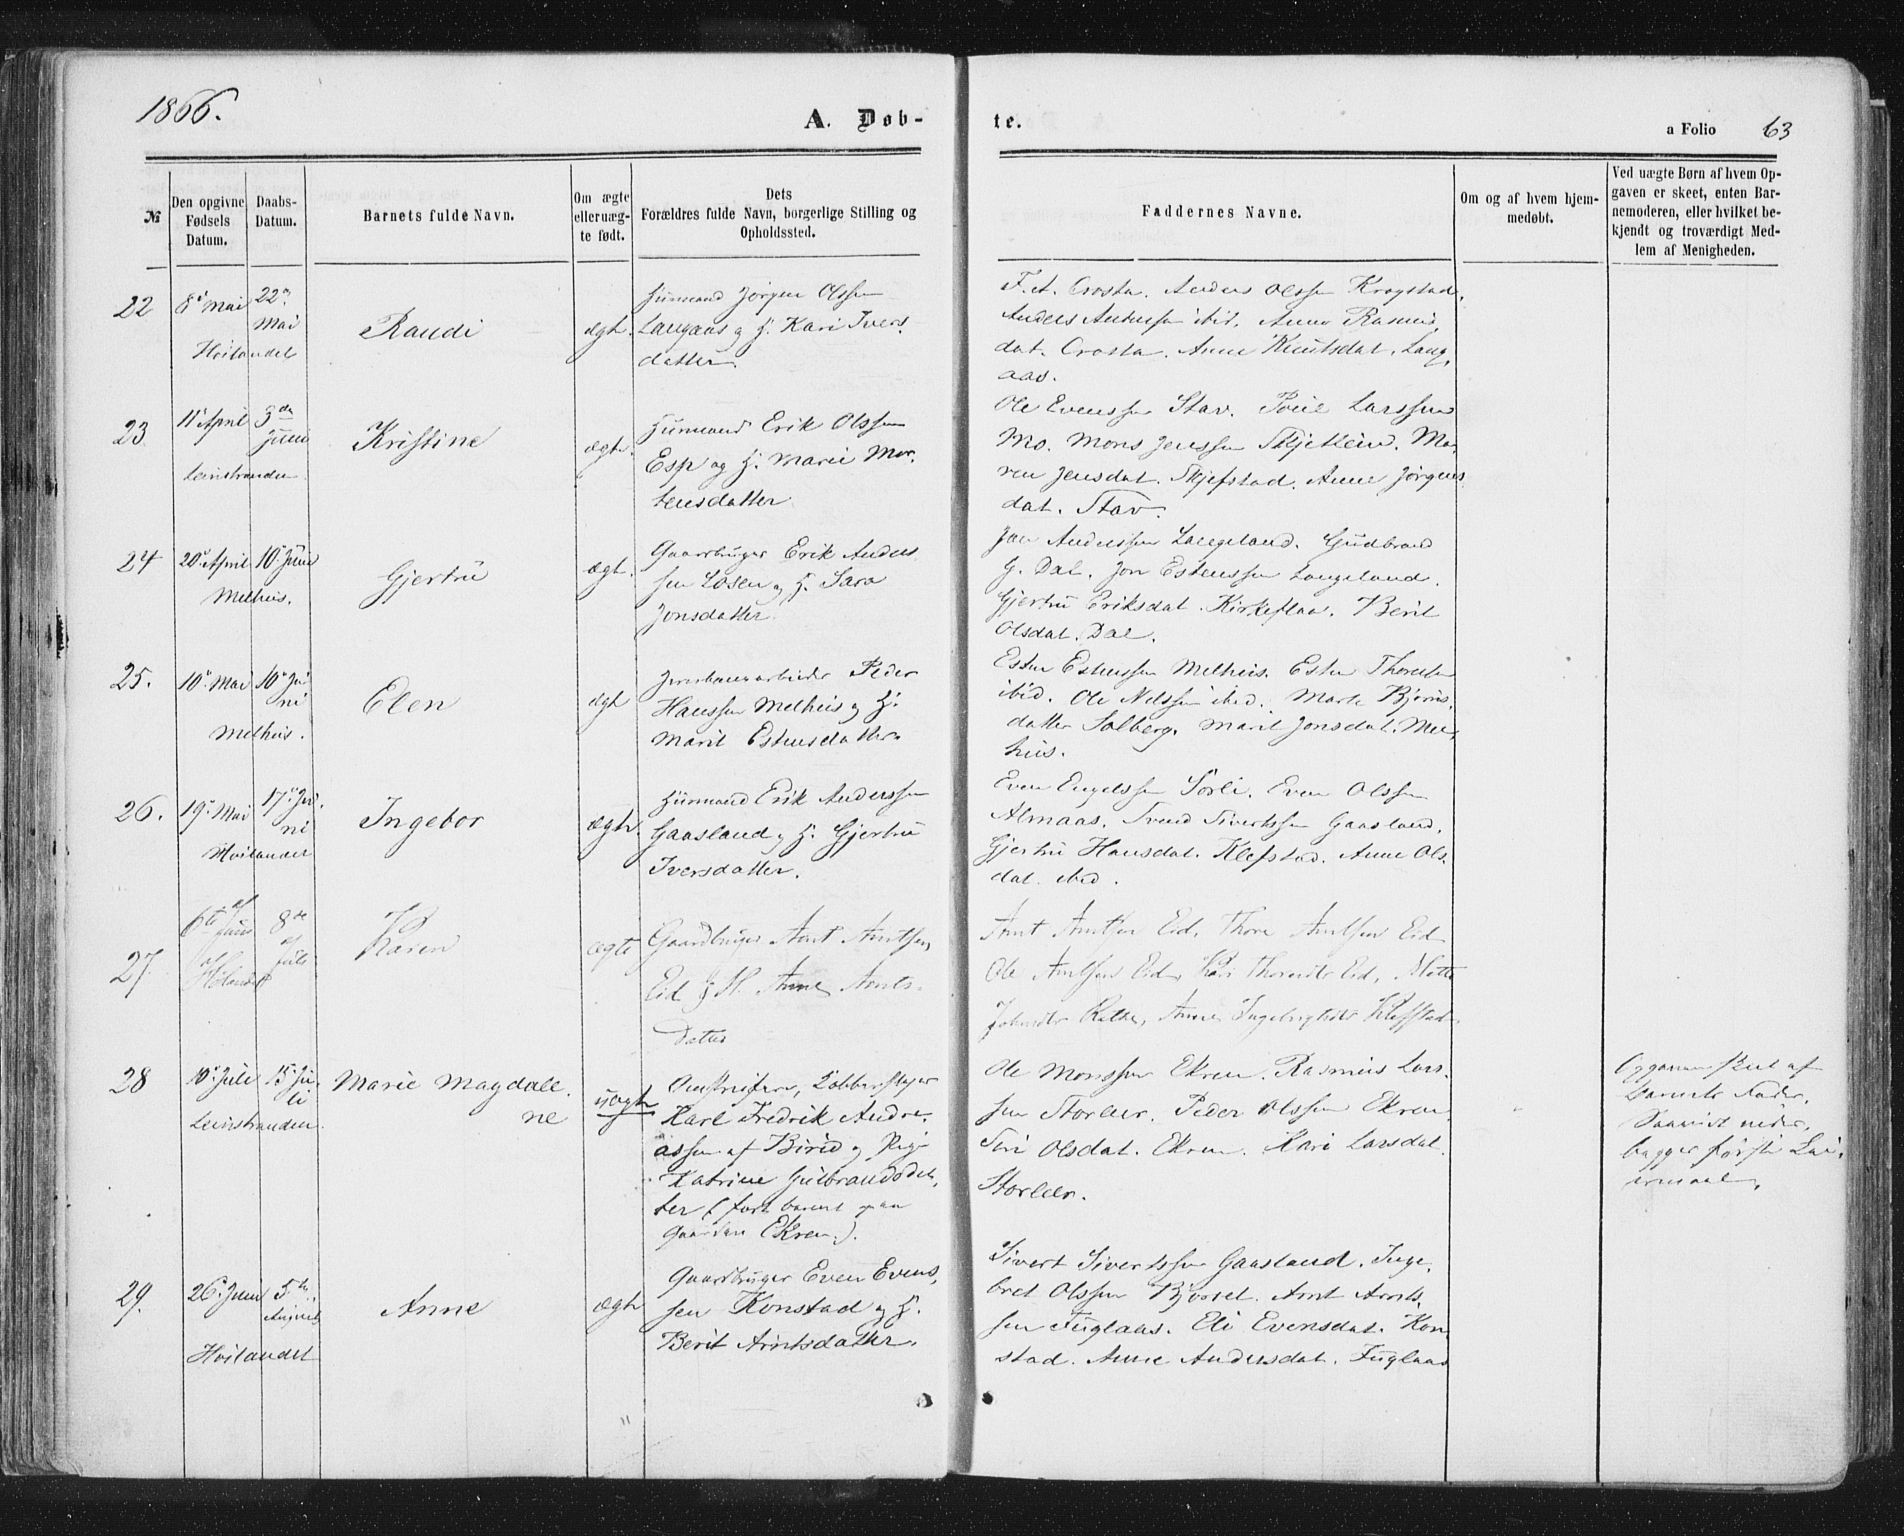 1866.
A. Døb-
te.
a Folio 63
№
Den opgivne Fødsels Datum.
Daabs-Datum.
Barnets fulde Navn.
Om ægte eller uæg-te født.
Dets Forældres fulde Navn, borgerlige Stilling og Opholdssted.
Faddernes Navne.
Om og af hvem hjem-medøbt.
Ved uægte Børn af hvem Op-gaven er skeet, enten Bar-nemoderen, eller hvilket be-kjendt og troværdigt Med-lem af Menigheden.
22
8de Mai
22de Mai
Höilandet
Randi
ægte
Huusmand Jörgen Olssen
Langaas og H. Kari Ivers
datter
F. A. Crosta. Anders Olssen Krogstad,
Anders Andersen ibid. Anne Rasmus
dat. Crosta. Anne Knutsdat. Lang,
aas.
23
11te April
3die Juni
Leinstranden
Kristine
ægte
Huusmand Erik Olssen
Esp og H. Marie Mor,
tensdatter
Ole Evenssen Stav. Poul Larssen
Mo. Mons Jenssen Skjetlein. Ma,
ren Jensdat. Skjefstad. Anne Jörgens
dat. Stav.
24
20de April
10de Juni
Melhus.
Gjertru
ægt.
Gaardbruger Erik Anders
sen Losen og H. Sara
Jonsdatter
Jon Anderssen Langeland. Gudbrand
G. Dal. Jon Estenssen Langeland.
Gjertru Eriksdat. Kirkeflaa. Berit
Olsdat. Dal.
25.
10de Mai
10de Ju
ni
Melhus.
Elen
ægt
Jernbanearbeider Peder
Hanssen Melhus og H.
Marit Estensdatter
Esten Estenssen Melhus. Esten Thoresen
ibid. Ole Nilssen ibid. Marte Bjørns
datter Solberg. Marit Jonsdat. Mel,
hus.
26.
19de Mai
17de Ju,
ni
Höilandet
Ingebor
ægte
Huusmand Erik Anderssen
Gaasland og H. Gjertru
Iversdatter.
Even Engelssen Sörli. Even Olssen
Almaas. Svend Sivertssen Gaasland,
Gjertru Hansdat. Klefstad. Anne Ols
dat. ibid.
27
6te af Juni
8de af Juli
af Hölandet
Karen
ægte
Gaardbruger Arnt Arntsen
Eid & H. Anne Arnts-
datter
Arnt Arntsen Eid, Thore Arntsen Eid
Ole Arntsen Eid, Kari Thoresdtr Eid, Mette
Johnsdtr Rathe, Anne Ingebrigtsdtr Klefstad
28
10de Juli
15de Ju,
li
Leinstranden.
Marie Magdale,
ne
uægte
Omstreifere, Kobberslager
Karl Fredrik Andre
assen af Birid og Pige
Katrine Gulbrandsdat,
ter (født barnet paa
gaarden Ekren).
Ole Monssen Ekren. Rasmus Lars
sen Storler. Peder Olssen Ekren
Siri Olsdat. Ekren. Kari Larsdat.
Storler.
Opgaven skeet af
Barnets Fader,
bagges første Lei,
ermaal.
29.
26de Juni
5te
August
Höilandet
Anne
ægte
Gaardbruger Even Evens,
sen Konstad og H.
Berit Arntsdatter.
Sivert Sivertssen Gaasland. Inge,
bret Olssen Bjørset. Arnt Arnts,
sen Fuglaas. Eli Evensdat. Kon
stad. Anne Andersdat. Fuglaas